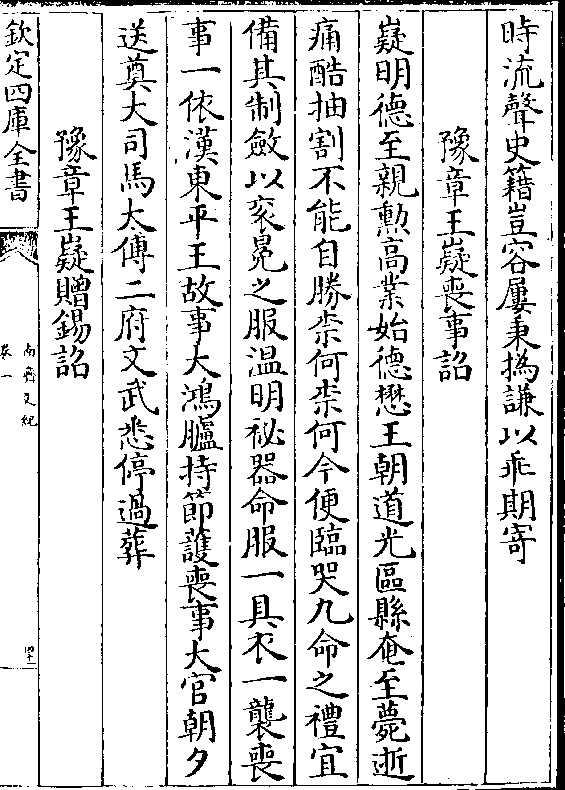 時流聲史籍豈容屢秉撝謙以乖期寄
豫章王嶷喪事詔
嶷明德至親勲高業始德懋王朝道光區縣奄至薨逝
痛酷抽割不能自勝柰何柰何今便臨哭九命之禮宜
備其制斂以衮冕之服温明祕器命服一具衣一襲喪
事一依漢東平王故事大鴻臚持節䕶喪事大官朝夕
送奠大司馬太傅二府文武悉停過葬
豫章王嶷贈錫詔
欽定四庫全書
南齊文紀
卷一